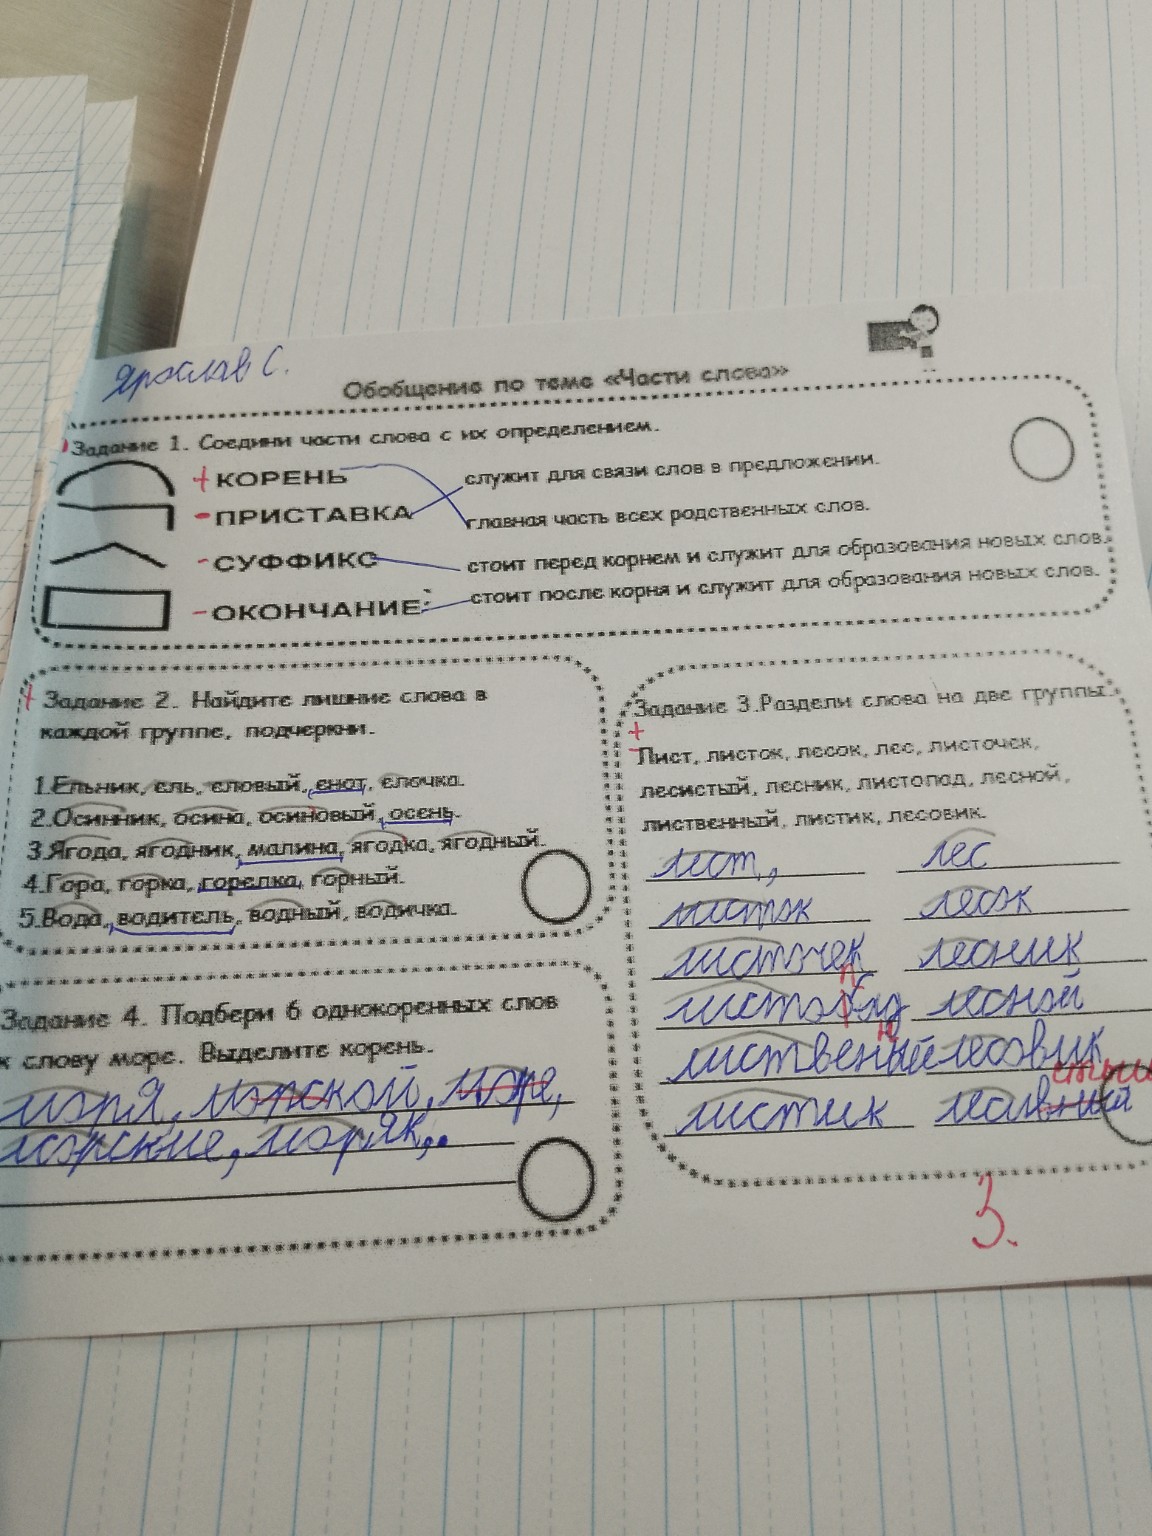 Ярослав С.
Обобщение по теме «Части слова»
Задание 1. Соедини части слова с их определением.
+ КОРЕНЬ служит для связи слов в предложении.
- ПРИСТАВКА главная часть всех родственных слов.
- СУФФИКС стоит перед корнем и служит для образования новых слов.
- ОКОНЧАНИЕ: стоит после корня и служит для образования новых слов.
+ Задание 2. Найдите лишние слова в
каждой группе, подчеркни.
1.Ельник, ель, еловый, енот, ёлочка.
2.Осинник, осина, осиновый, осень.
3.Ягода, ягодник, малина, ягодка, ягодный.
4.Гора, горка, горелка, горный.
5.Вода, водитель, водный, водичка.
Задание 3.Раздели слова на две группы.
+
Лист, листок, лесок, лес, листочек,
лесистый, лесник, листопад, лесной,
лиственный, листик, лесовик.
лист, лес
листок лесок
листочек лесник
лесной
лиственый лесовик
н
листик
стый
Задание 4. Подбери 6 однокоренных слов
к слову море. Выделите корень.
моря, морской, море,
морские, моряк,
3.